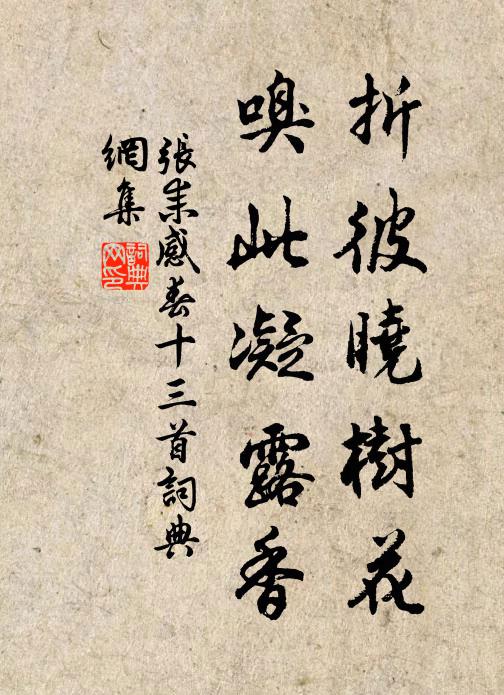 折彼曉樹花
嗅此凝露香
張耒感春十三首詞典
網集
詞典
网印